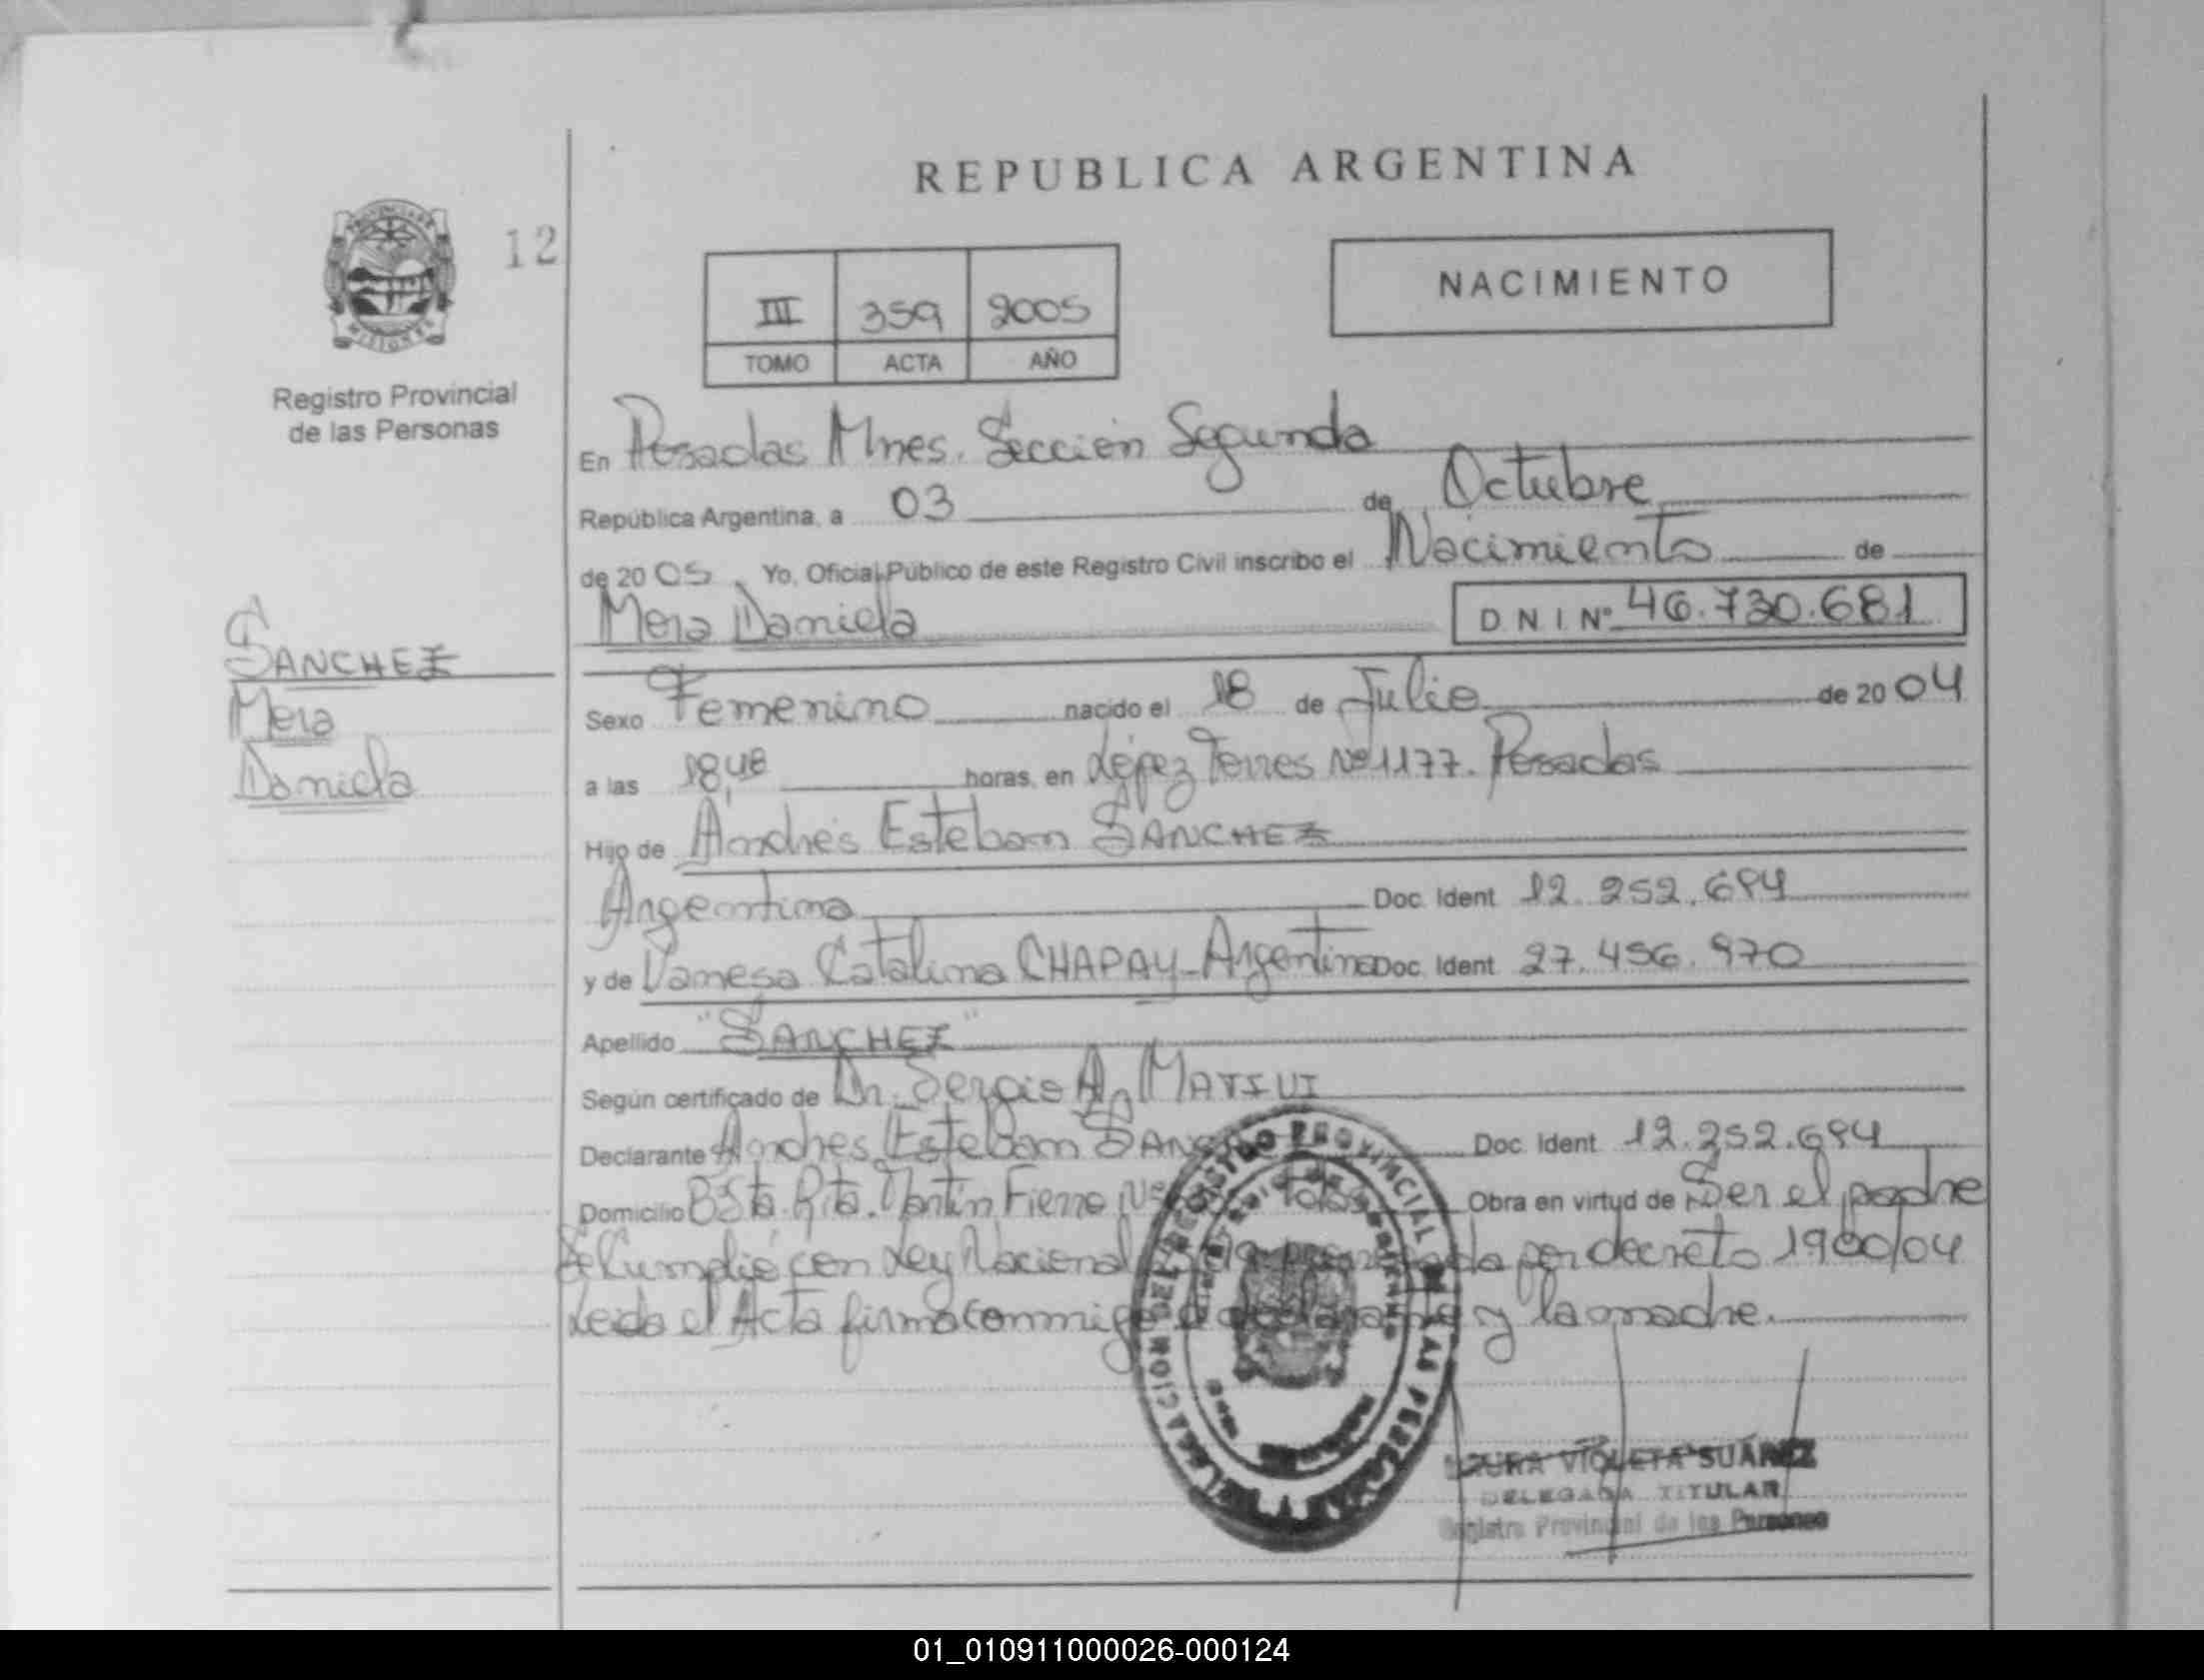 REPUBLICA ARGENTINA
12
III 359 2005
TOMO ACTA AÑO
NACIMIENTO
Registro Provincial
de las Personas
En Posadas Mnes. Sección Segunda
República Argentina, a 03 de Octubre
de 20 05, Yo, Oficial Público de este Registro Civil inscribo el Nacimiento de
Mera Daniela D N I Nº 46.730.681
SANCHEZ
Mera
Daniela
Sexo Femenino nacido el 18 de Julio de 20 04
a las 18,48 horas, en López Torres Nº 1177. Posadas
Hijo de Andrés Esteban SANCHEZ
Argentina Doc. Ident 12.252.694
y de Vanesa Catalina CHAPAY - Argentina Doc. Ident 27.456.970
Apellido "SANCHEZ"
Según certificado de Dr. Sergio A. MATSUI
Declarante Andrés Esteban Doc. Ident 12.252.694
Domicilio Bº Sta. Rita. Martín Fierro Nº Obra en virtud de Ser el padre
Se Cumplió con Ley Nacional por decreto 1900/04
Leida el Acta firma conmigo y la madre.
REGISTRO PROVINCIAL DE LAS PERSONAS
LAURA VIOLETA SUÁREZ
DELEGADA TITULAR
Registro Provincial de las Personas
01_010911000026-000124